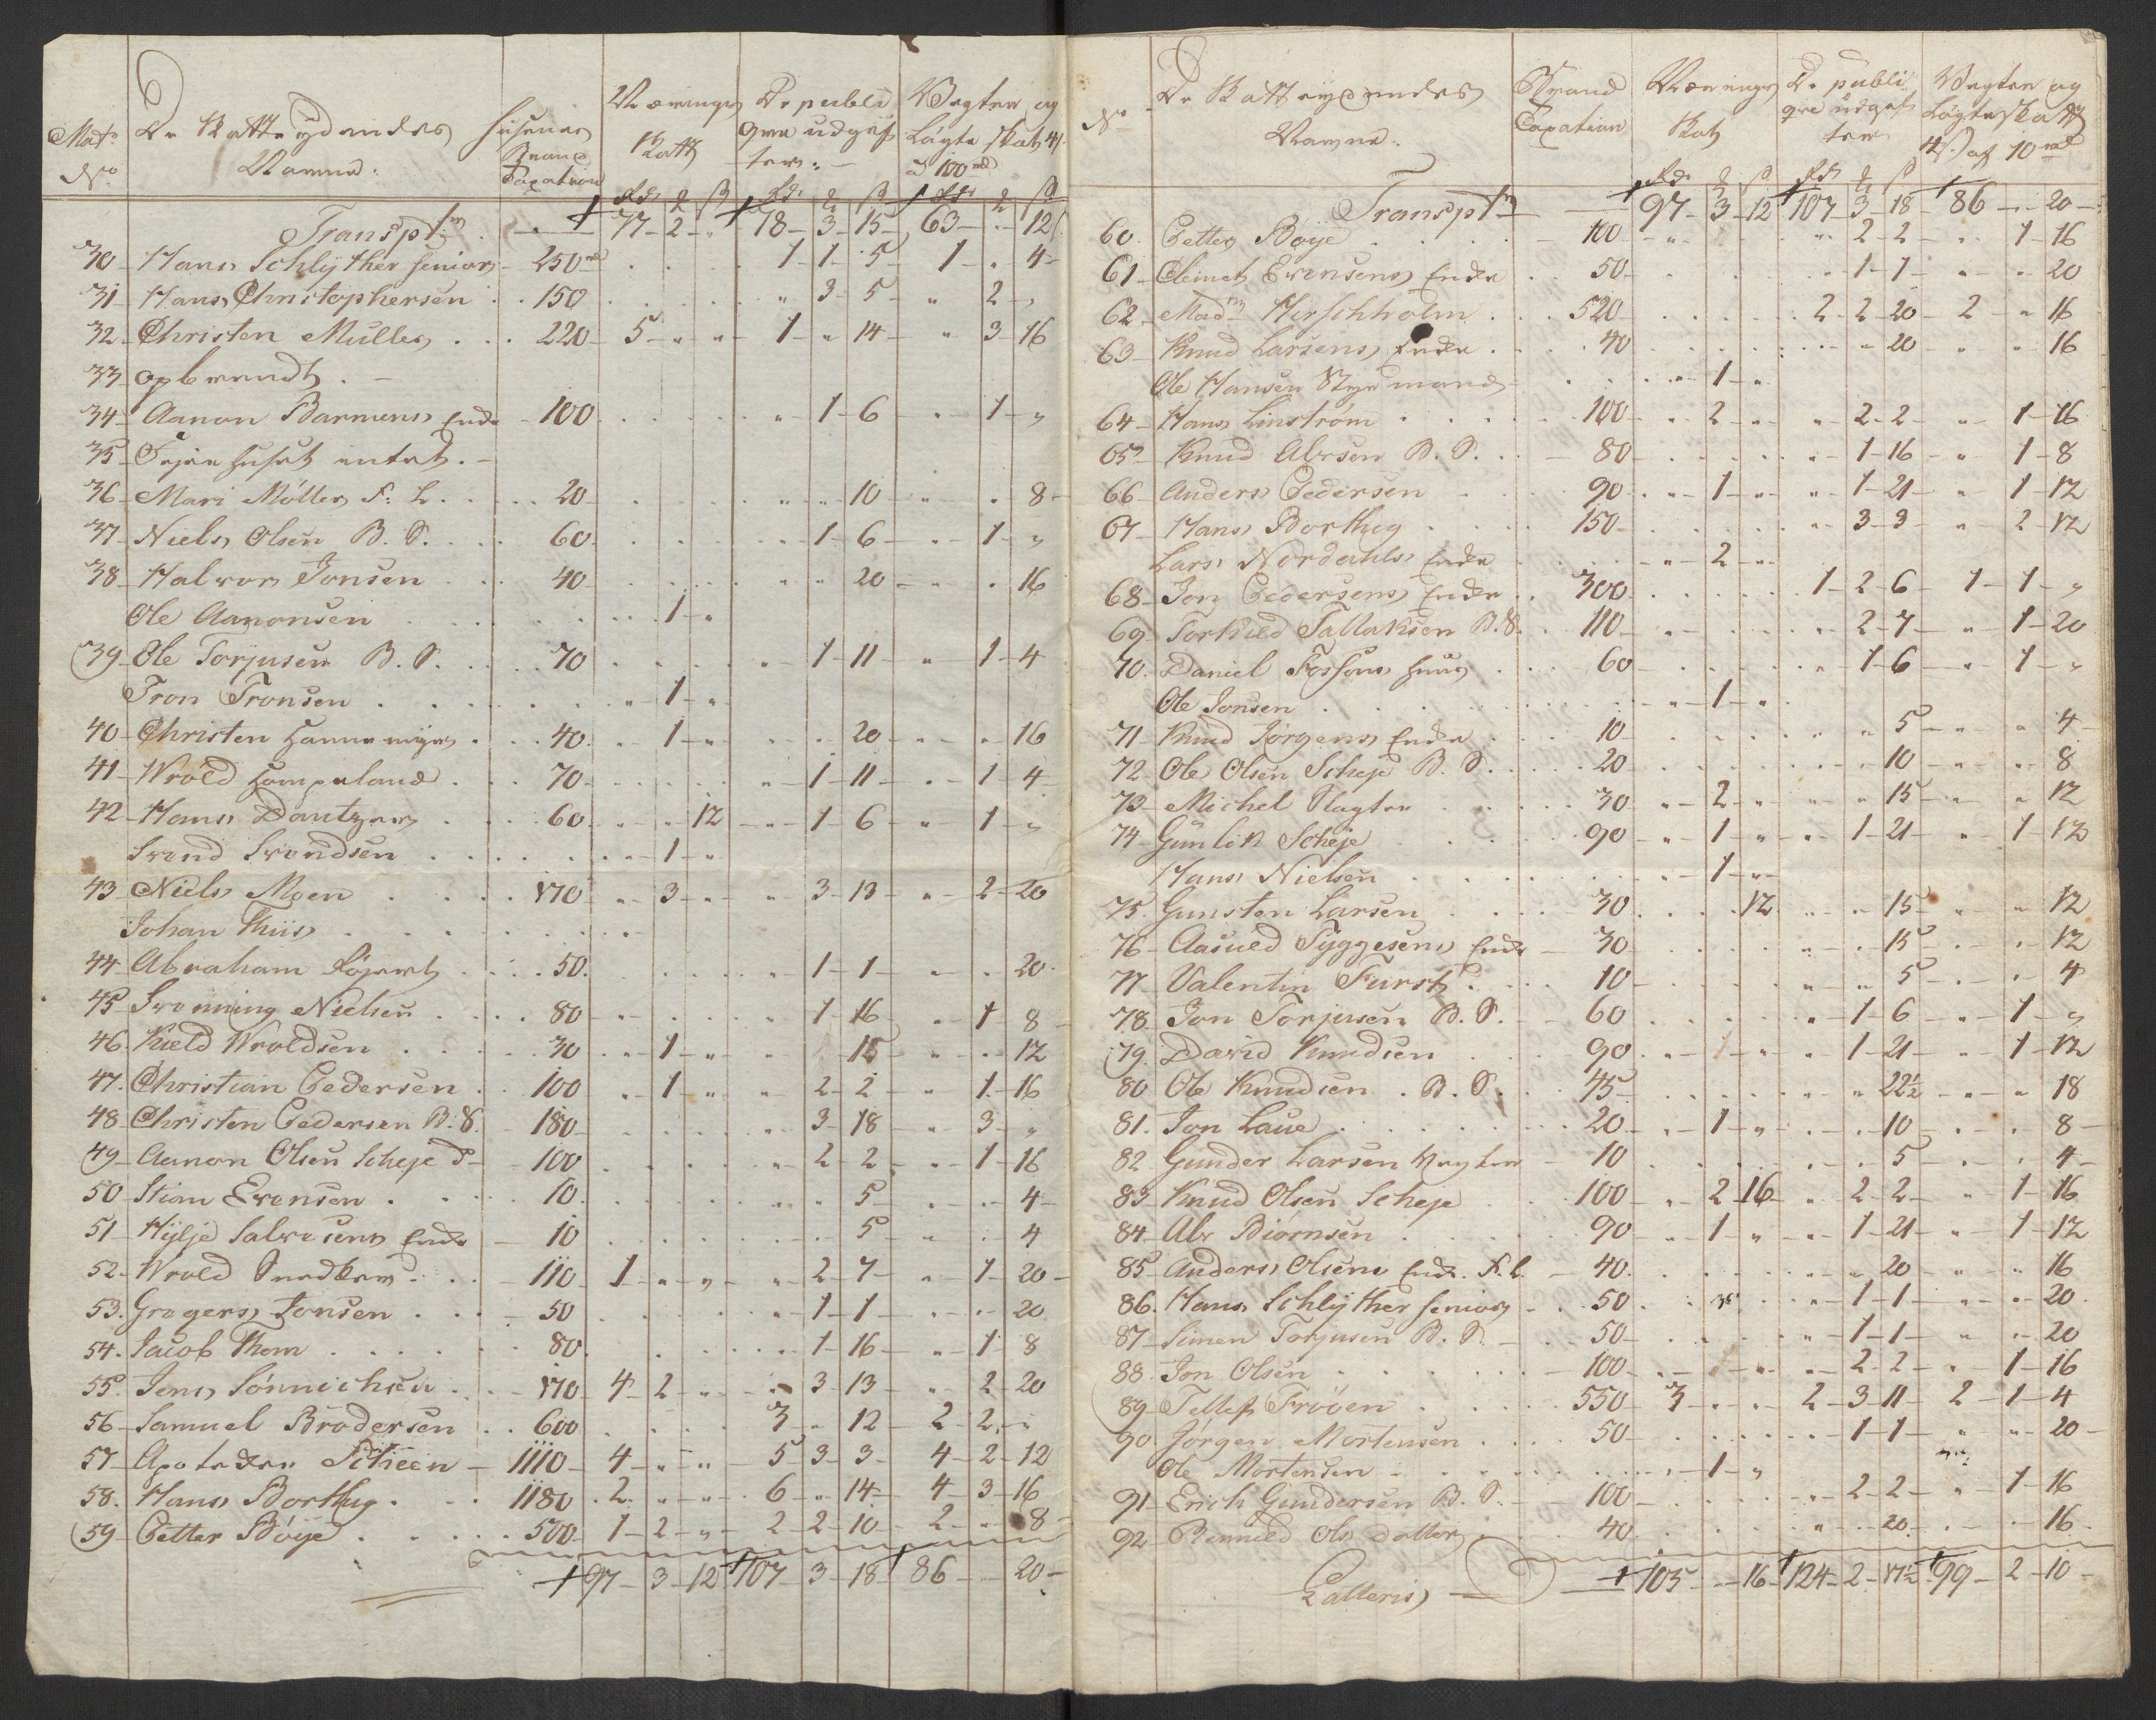 Mat: No
De Skatt-ydendes Navne:
Husenes Brand Taxation
Nærings Skatt
De publique udgifter:
Vægter og Løgte skat 4 ß a 100 rd
Rdr ₰ ß Rdr ₰ ß Rdr ₰ ß
Transptr 77 - 2 - " 78 - 3 - 15 63 - " - 12
30 Hans Schlÿther senior 250 rd 1 - 1 - 5 1 - " - 4
31 Hans Christophersen 150 " 3 - 5 " 2 - "
32 Christen Muller 220 5 - " - " 1 - " - 14 " 3 16
33 opbrendt
34 Aanon Barmens Enke 100 " 1 - 6 " 1 - "
35 Tøjehuset intet
36 Mari Møller F: L. 20 " " 10 " " 8
37 Niels Olsen B. S. 60 " 1 - 6 " 1 - "
38 Halvor Jonsen 40 " " 20 " " 16
Ole Aanonsen 1 - "
39 Ole Torjusen B. S. 70 " 1 - 11 " 1 - 4
Tron Tronsen " 1 - "
40 Christen Hannemyr 40 " 1 - " " " 20 " " 16
41 Wrold Hampeland 70 " 1 - 11 " 1 - 4
42 Hans Dantzer 60 " " 12 " 1 - 6 " 1 - "
Svend Svendsen " 1 - "
43 Niels Moen 170 " 3 - " " 3 - 13 " 2 - 20
Johan Thiis
44 Abraham Føjert 50 " 1 - 1 " " 20
45 Svenning Nielsen 80 " 1 - 16 " 1 - 8
46 Kield Wroldsen 30 " 1 - " " 15 " " 12
47 Christian Pedersen 100 " 1 - " " 2 - 2 " 1 - 16
48 Christen Pedersen B. S. 180 " 3 - 18 " 3 - "
49 Aanon Olsen Scheje 100 " 2 - 2 " 1 - 16
50 Stian Evensen 10 " " 5 " " 4
51 Hylje Salvesens Enke 10 " 5 " " 4
52 Wrold Snedker 110 1 - " - " " 2 - 7 " 1 - 20
53 Gregers Jonsen 50 " 1 - 1 " " 20
54 Jacob Thom 80 " 1 - 16 " 1 - 8
55 Jens Sønnichsen 170 4 - 2 - " " 3 - 13 " 2 - 20
56 Samuel Brodersen 600 3 " 12 2 - 2 - "
57 Apoteker Scheen 1110 4 - " - " 5 - 3 - 3 4 - 2 - 12
58 Hans Borthig 1180 2 - " - " 6 - " - 14 4 - 3 - 16
59 Petter Bøye 500 1 - 2 - " 2 - 2 - 10 2 - " - 8
97 - 3 - 12 107 - 3 - 18 86 - 20
No
De Skatteydendes Navne:
Brand Taxation
Nærings Skat
De publique udgifter
Vægter og Løgteskatt 4 ß af 10 rd
Rdr ₰ ß Rdr ₰ ß
Transptr 97 - 3 - 12 107 - 3 - 18 86 - " - 20
60 Petter Bøye 100 " " 2 - 2 " 1 - 16
61 Clemet Evensens Enke 50 " 1 - 1 " " 20
62 Mad:m Hirschholm 520 2 - 2 - 20 2 - " 16
63 Knud Larsens Enke 40 " 20 " " 16
Ole Hansen Styrmand " 1 - "
64 Hans Linstrøm 100 " 2 - " " 2 - 2 " 1 - 16
65 Knud Abrsen B. S. 80 " 1 - 16 " 1 - 8
66 Anders Pedersen 90 " 1 - " " 1 - 21 " 1 - 12
67 Hans Borthig 150 " 3 - 3 " 2 - 12
Lars Nordahls Enke " 2 - "
68 Jon Pedersens Enke 300 1 - 2 - 6 1 - 1 - "
69 Torkild Tallaksen B. S. 110 " 2 - 7 " 1 - 20
70 Daniel Fossons Huus 60 " 1 - 6 " 1 - "
Ole Jonsen " 1 - "
71 Knud Jørgens Enke 10 " " 5 " " 4
72 Ole Olsen Scheje B. S. 20 " 10 " " 8
73 Michel Slagter 30 " 2 - " " " 15 " " 12
74 Gunlek Scheje 90 " 1 - " " 1 - 21 " 1 - 12
Hans Nielsen " 1 - "
75 Gunsten Larsen 30 12 " " 15 " " 12
76 Aasuld Tÿggesens Enke 30 " " 15 " " 12
77 Valentin Furst 10 " " 5 " 4
78 Jon Torjusen B. S. 60 " 1 - 6 " 1 - "
79 David Knudsen 90 " 1 - " " 1 - 21 " 1 - 12
80 Ole Knudsen B. S. 45 " " 22½ " " 18
81 Jon Laue 20 " 1 - " " 10 " 8
82 Gunder Larsen Vægter 10 " " 5 " 4
83 Knud Olsen Scheje 100 " 2 - 16 " 2 - 2 " 1 - 16
84 Abr Biørnsen 90 " 1 - " " 1 - 21 " 1 - 12
85 Anders Olsens Enke F. L. 40 " 20 " " 16
86 Hans Schlÿther senior 50 " 1 - 1 " " 20
87 Simen Torjusen B. S. 50 " 1 - 1 " " 20
88 Jon Olsen 100 " " 2 - 2 " 1 - 16
89 Tellef Trøen 550 3 - " - " 2 - 3 - 11 2 - 1 - 4
90 Jørgen Mortensen 50 " 1 - 1 " " 20
Ole Mortensen 1 - "
91 Erich Gundersen B. S. 100 " 2 - 2 " 1 - 16
92 Rennild Ols datter 40 " 20 " 16
Lateris 105 - " - 16 124 - 2 - 17½ 99 - 2 - 10